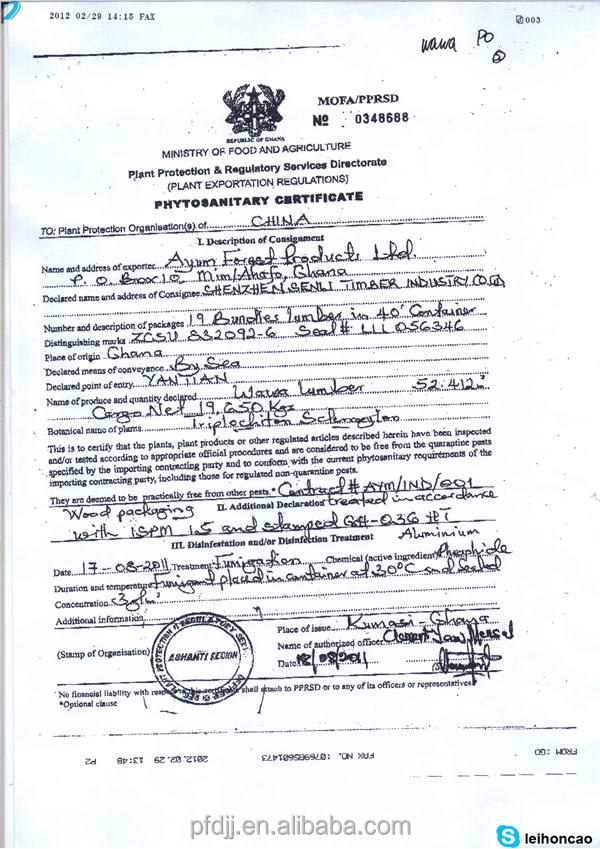 2012 02/29 14:15 FAX
003
wawa PO
MOFA/PPRSD
No 0348688
REPUBLIC OF GHANA
MINISTRY OF FOOD AND AGRICULTURE
Plant Protection & Regulatory Services Directorate
(PLANT EXPORTATION REGULATIONS)
PHYTOSANITARY CERTIFICATE
TO: Plant Protection Organisation(s) of CHINA
I. Description of Consignment
Name and address of exporter Ayum Forest Products Ltd
P. O. Box 10, Mim/Ahafo, Ghana
Declared name and address of Consignee SHENZHEN SENLI TIMBER INDUSTRY CO. LTD
Number and description of packages 19 Bundles lumber in 40' Container
Distinguishing marks ZCSU 832092-6 Seal # LLL 056346
Place of origin Ghana
Declared means of conveyance By Sea
Declared point of entry YANTIAN
Name of produce and quantity declared Wawa lumber 52.412m³
Cargo Net 19,650 Kgs
Botanical name of plants Triplochiton Scleroxylon
This is to certify that the plants, plant products or other regulated articles described herein have been inspected
and/or tested according to appropriate official procedures and are considered to be free from the quarantine pests
specified by the importing contracting party and to conform with the current phytosanitary requirements of the
importing contracting party, including those for regulated non-quarantine pests.
They are deemed to be practically free from other pests.* Contract # AYM/IND/001
II. Additional Declaration
Wood packaging treated in accordance
with ISPM 15 and stamped GH-036 HT
III. Disinfestation and/or Disinfection Treatment
Date 17-08-2011 Treatment Fumigation Chemical (active ingredient) Aluminium Phosphide
Duration and temperature Fumigant placed in container at 30°C and sealed
Concentration 3g/m³
Additional information
Place of issue Kumasi - Ghana
(Stamp of Organisation)
ASHANTI REGION
Name of authorized officer Clement
Date 18/08/2011
No financial liability with respect to this certificate shall attach to PPRSD or to any of its officers or representatives.*
*Optional clause
FROM :GD
FAX NO. :076985601473
2012.02.29 13:48
P2
pfdjj.en.alibaba.com
leihoncao